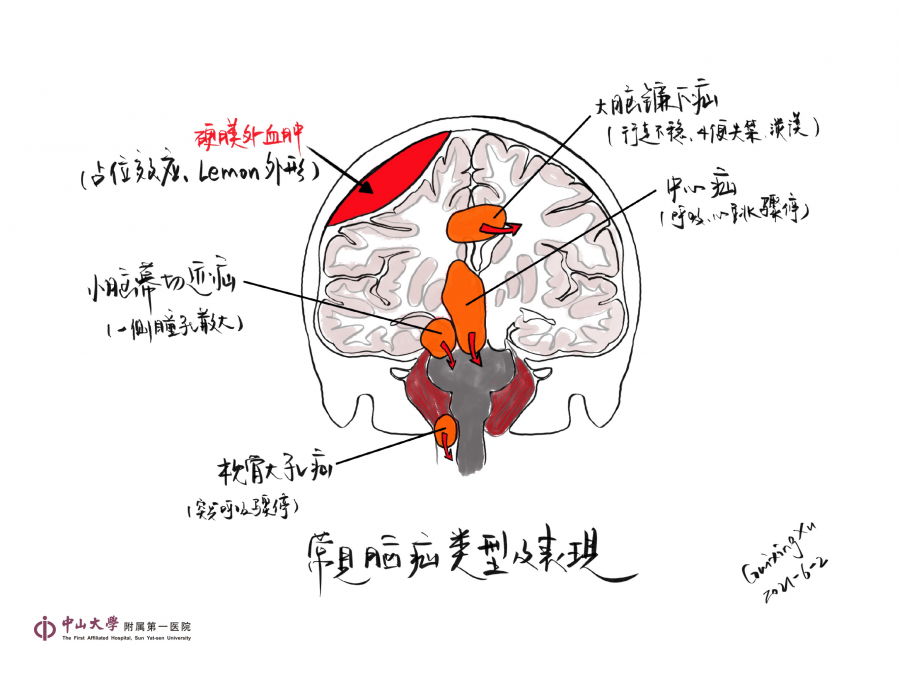 硬膜外血肿
(占位效应、Lemon外形)
大脑镰下疝
(行走不稳、小便失禁、淡漠)
中心疝
(呼吸、心跳骤停)
小脑幕切迹疝
(一侧瞳孔散大)
枕骨大孔疝
(突发呼吸骤停)
常见脑疝类型及表现
Guixing Xu
2021-6-2
中山大学 附属第一医院
The First Affiliated Hospital, Sun Yat-sen University